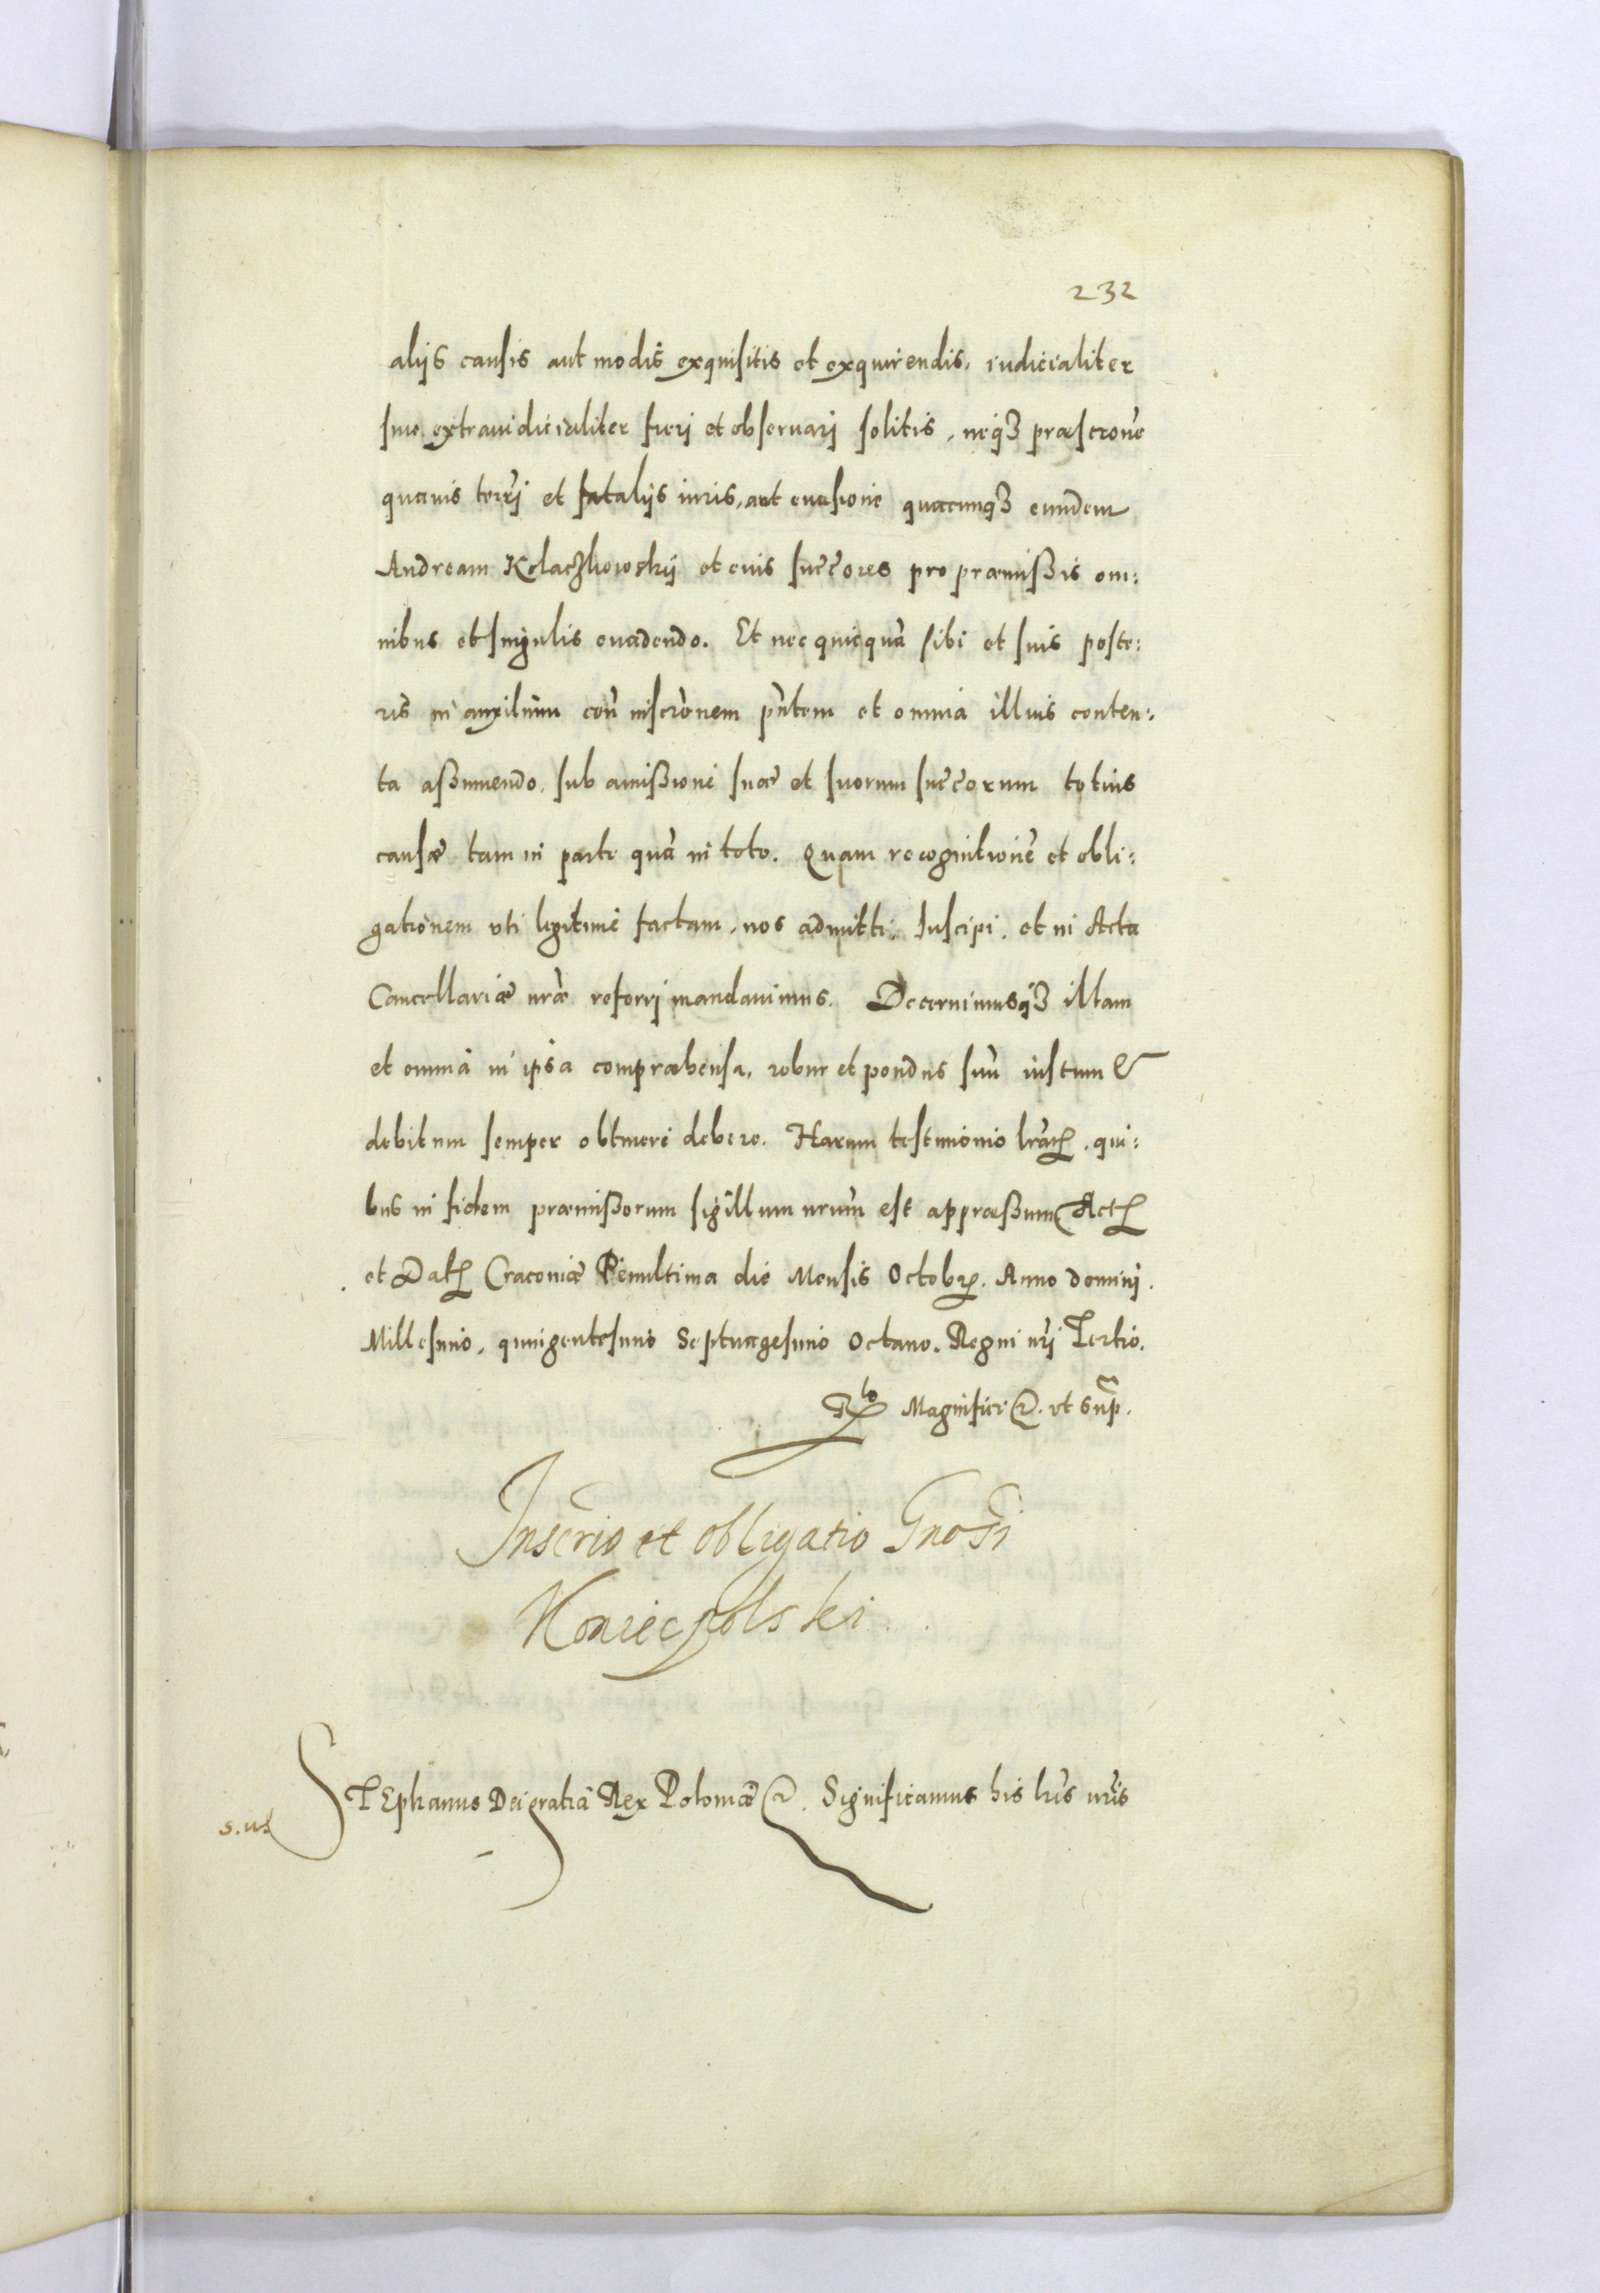 232
alijs causis aut modis exquisitis et exquirendis, iudicialiter
siue extraiudicialiter fieri et obseruari solitis, neq3 præscrone
quauis terrj et fatalijs iuris, aut euasione quacunq3 eundem
Andream Kolaczkowskij et euis succores pro præmißis om:
nibus et singulis euadendo. Et nec quicquā sibi et suis poste:
ris in auxilium con̄ inscr̄onem pn̄tem et omnia illius conten:
ta aßumendo, sub amißione suæ et suorum succorum totius
causæ tam in parte quā in toto. Quam recognitionē et obli:
gationem vti legitime factam, nos admitti, suscipi, et in Acta
Cancellariæ nræ referrj mandauimus. Decernimusq3 illam
et omnia in ipsa compræhensa, robur et pondus suū iustum &
debitum semper obtinere debere. Harum testimonio lrarꝝ, qui:
bus in fidem præmißorum sigillum nrum est appræßum Actꝝ
et Datꝝ Cracouiæ Penultima die Mensis Octobrꝝ. Anno dominj
Millesimo, quingentesimo Septuagesimo Octauo. Regni nrj Tertio.
Rlo Magnifici &. vt Sup.
Inscrio et obligatio Gnosi
Koniecpolski
s. us
STEphanus Dei gratia Rex Poloniæ &. Significamus his lris nris